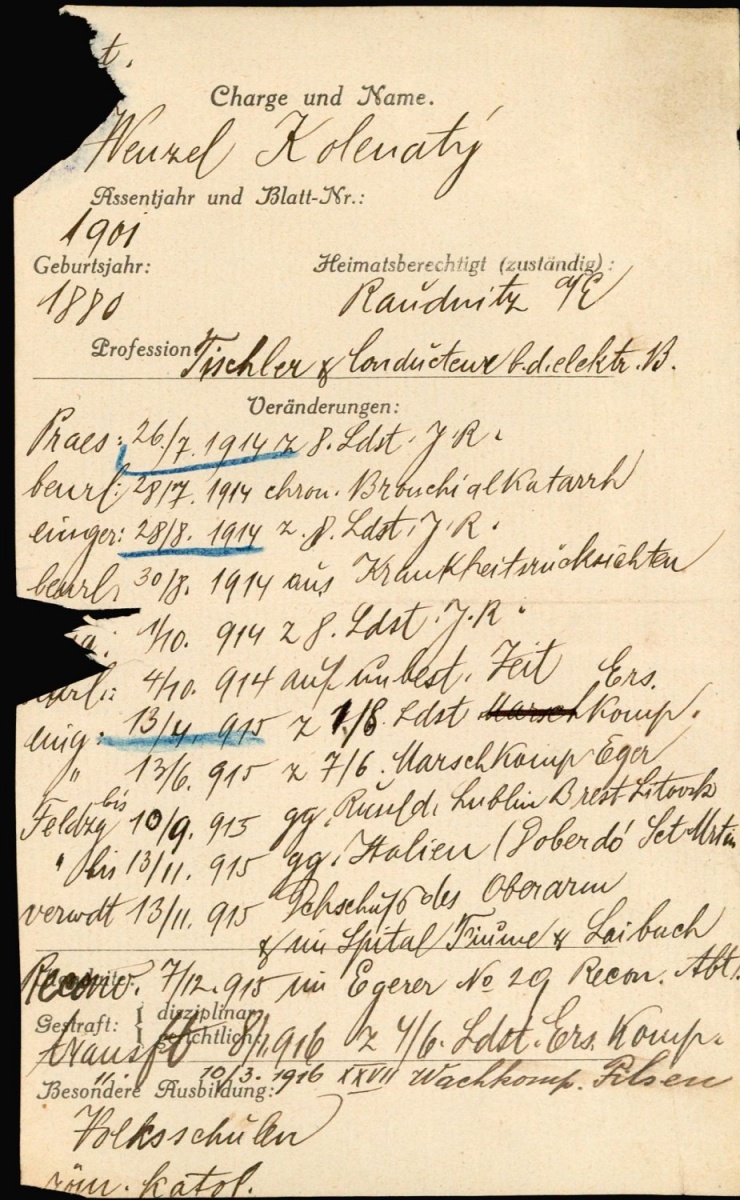 t.
Charge und Name.
Wenzel Kolenatý
Assentjahr und Blatt-Nr.:
1901
Geburtsjahr: Heimatsberechtigt (zuständig):
1880 Raudnitz a/E
Profession: Tischler & Conducteur b. d. elektr. B.
Veränderungen:
Praes: 26./7. 1914 z 8. Ldst. J. R.
beurl: 28/7. 1914 chron. Bronchialkatarrh
einger: 28/8. 1914 z. 8. Ldst. J. R.
beurl, 30/8. 1914 aus Krankheitsrücksichten
1/10. 914 z 8. Ldst. J. R.
url.: 4/10. 914 auf unbest. Zeit
eing: 13/4. 915 z 1/8. Ldst Ers. Komp.
" 13/6. 915 z 7/6. Marschkomp Eger
Feldzg bis 10/9. 915 gg. Rußld. Lublin Brest-Litovsk
" bis 13/11. 915 gg. Italien (Doberdó Sct Mrtin
verwdt 13/11. 915 Schuß des Oberarm
& im Spital Fiume & Laibach
Recon. 7/12. 915 im Egerer No 29 Recon. Abt.
Gestraft: { disziplinar: gerichtlich:
transf 8/1. 1916 z 4/6. Ldst. Ers. Komp.
" 10/3. 1916 XXVII Wachkomp. Pilsen
Besondere Ausbildung:
Volksschulen
röm. katol.